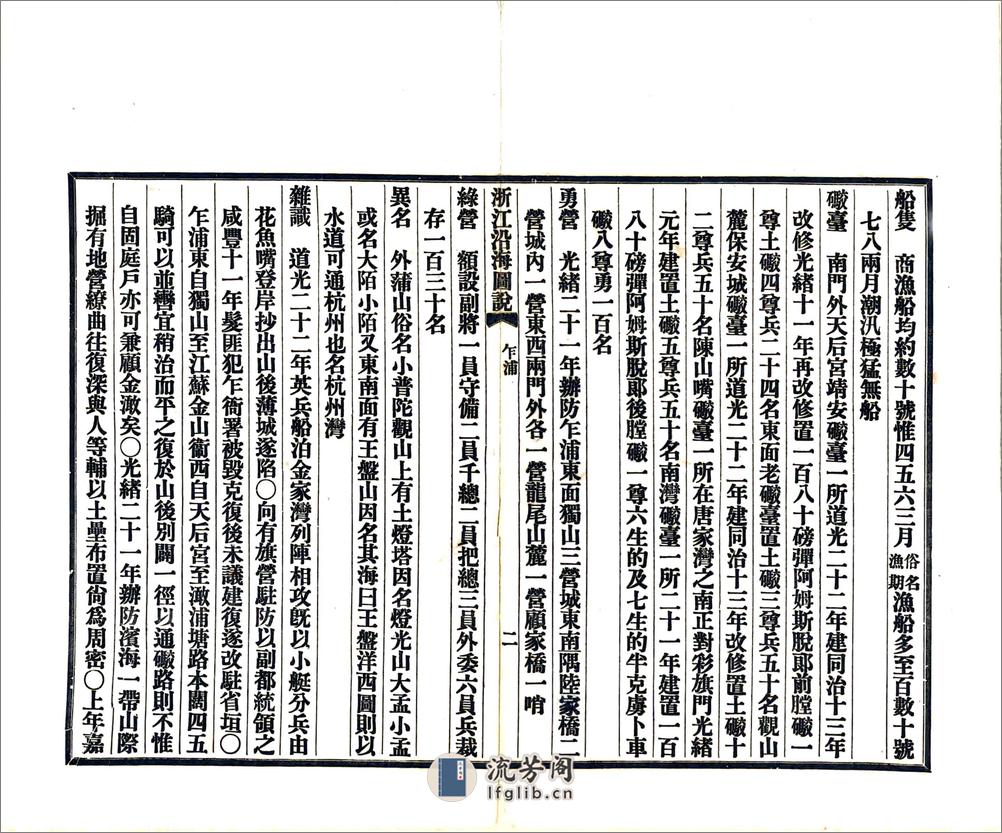 船隻　商漁船均約數十號惟四五六三月俗名漁期漁船多至百數十號
七八兩月潮汛極猛無船
礮臺　南門外天后宮靖安礮臺一所道光二十二年建同治十三年
改修光緒十一年再改修置一百八十磅彈阿姆斯脫郎前膛礮一
尊土礮四尊兵二十四名東面老礮臺置土礮三尊兵五十名觀山
麓保安城礮臺一所道光二十二年建同治十三年改修置土礮十
二尊兵五十名陳山嘴礮臺一所在唐家灣之南正對彩旗門光緒
元年建置土礮五尊兵五十名南灣礮臺一所二十一年建置一百
八十磅彈阿姆斯脫郎後膛礮一尊六生的及七生的半克虜卜車
礮八尊勇一百名
勇營　光緒二十一年辦防乍浦東面獨山三營城東南隅陸家橋二
營城內一營東西兩門外各一營龍尾山麓一營顧家橋一哨
浙江沿海圖說　乍浦　二
綠營　額設副將一員守備二員千總二員把總三員外委六員兵裁
存一百三十名
異名　外蒲山俗名小普陀觀山上有土燈塔因名燈光山大孟小孟
或名大陌小陌又東南面有王盤山因名其海曰王盤洋西圖則以
水道可通杭州也名杭州灣
雜識　道光二十二年英兵船泊金家灣列陣相攻旣以小艇分兵由
花魚嘴登岸抄出山後薄城遂陷〇向有旗營駐防以副都統領之
咸豐十一年髮匪犯乍衙署被毀克復後未議建復遂改駐省垣〇
乍浦東自獨山至江蘇金山衞西自天后宮至澉浦塘路本闊四五
騎可以並轡宜稍治而平之復於山後別闢一徑以通礮路則不惟
自固庭戶亦可兼顧金澉矣〇光緒二十一年辦防濱海一帶山際
掘有地營繚曲往復深與人等輔以土壘布置尙爲周密〇上年嘉
流芳阁
lfglib.cn